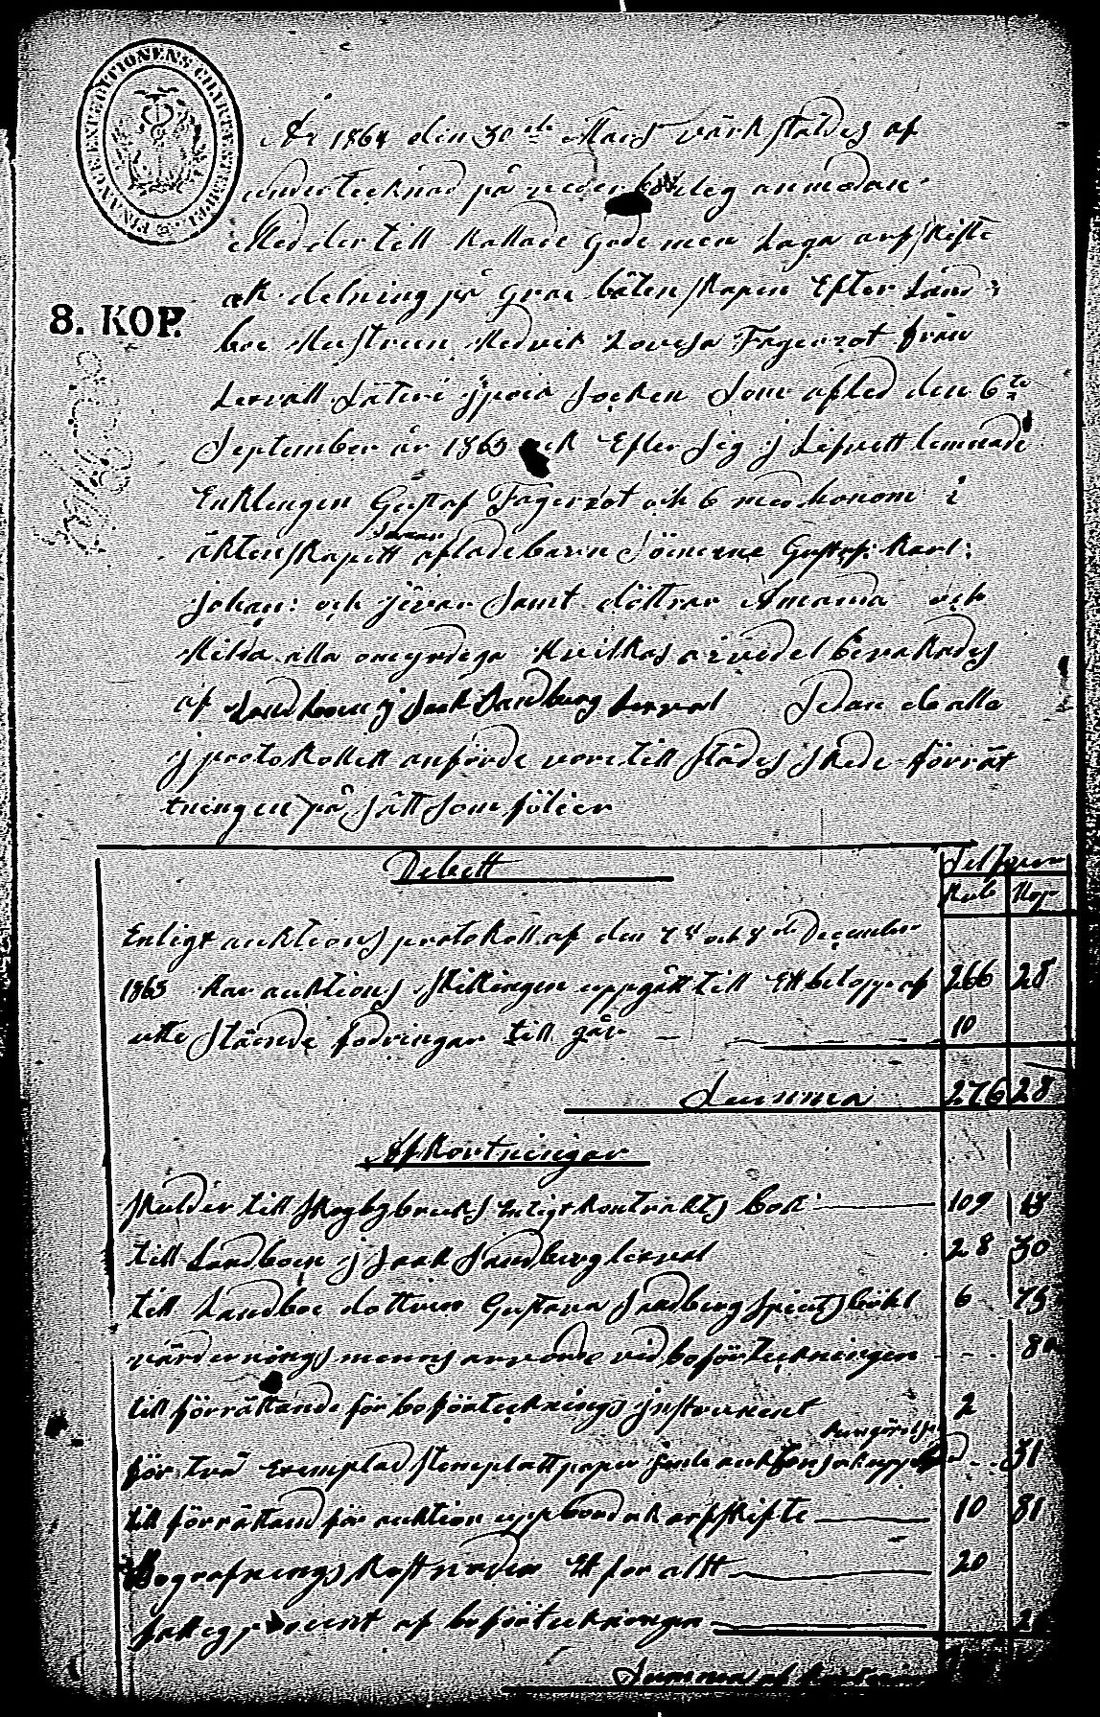 FINANCE EXPEDITIONENS CHARTÆ STEMPEL
8. KOP.
År 1864 den 30de Mars värkstäldes af
undertecknad på anmodan
Med der till kallade gode men Laga arfskifte
ok delning på qvar låtenskapen Efter Land
boe Hustrun Hedvik Lovisa Fagerrot från
Lexvall Säteri socken Som afled den 6te
September år 1863 ok Efter Sig j Lifvett lemnade
Enklingen Gustaf Fagerrot och 6 med honom i
äktenskapett aflade barn Sönerne Gustaf: Karl:
Johan: och jivar Samt döttrar Amanda och
Hilda alla omyndiga Hvilkas arvedel bevakades
af Landboen j Sack Sandberg Lexval Sedan de alla
j protokollett anförde vore till städes skede förrät
tningen på Sätt Som följer
Debett
Silfver
Rub Kop
Enligt auktions protokoll af den och December
1863 Har auktions Skillingen uppgått till Ett belopp af 266 28
ute Stående fodringar till går 10
Summa 276 28
Afkortningar
skulder till skogbybruks Enligt kontrakts bok 109
till Landboen j Saak Sandberg Lexval 28 30
till Landboe dottren Gustava Sandberg 6 75
värdernings menas arvode vid boförteckningen 80
till förrättande för boförtecknings jnstrument 2
kungörelse
för två Exemplar stemplatt paper 31
till förrättand för auktion uppbord ok arfskifte 10 81
Begrafnings kostnader Ett för altt 20
fattig procent af boförteckningen
Summa af kortnin